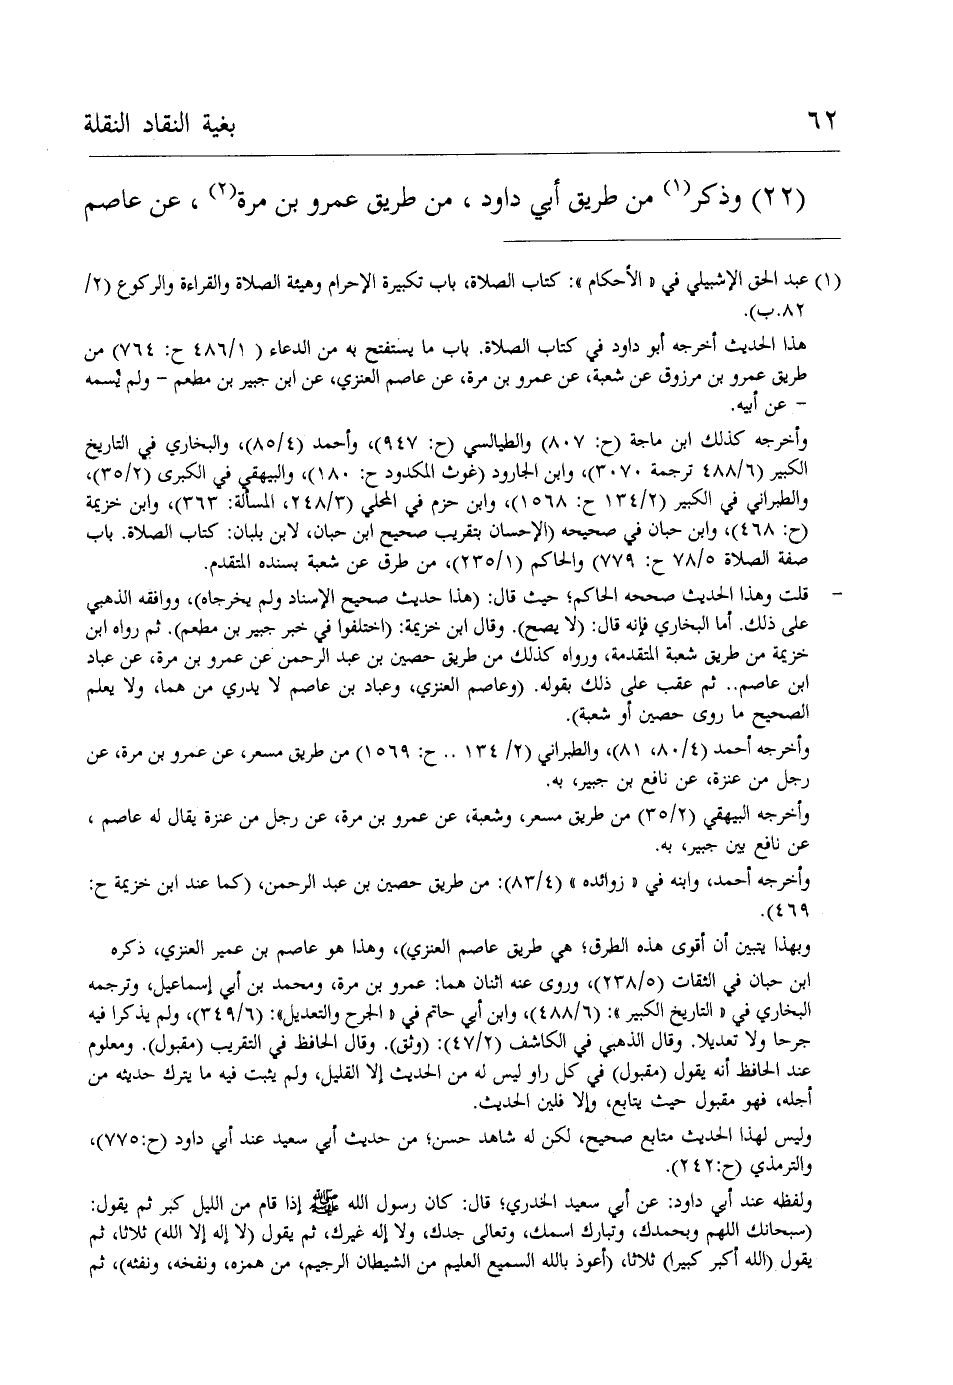 ٦٢ بغية النقاد النقلة
(٢٢) وذكر(١) من طريق أبي داود ، من طريق عمرو بن مرة(٢) ، عن عاصم
(١) عبد الحق الإشبيلي في « الأحكام »: كتاب الصلاة، باب تكبيرة الإحرام وهيئة الصلاة والقراءة والركوع (٢/
٨٢.ب).
هذا الحديث أخرجه أبو داود في كتاب الصلاة. باب ما يستفتح به من الدعاء ( ٤٨٦/١ ح: ٧٦٤) من
طريق عمرو بن مرزوق عن شعبة، عن عمرو بن مرة، عن عاصم العنزي، عن ابن جبير بن مطعم – ولم يُسمه
– عن أبيه.
وأخرجه كذلك ابن ماجة (ح: ٨٠٧) والطيالسي (ح: ٩٤٧)، وأحمد (٨٥/٤)، والبخاري في التاريخ
الكبير (٤٨٨/٦ ترجمة ٣٠٧٠)، وابن الجارود (غوث المكدود ح: ١٨٠)، والبيهقي في الكبرى (٣٥/٢)،
والطبراني في الكبير (١٣٤/٢ ح: ١٥٦٨)، وابن حزم في المحلي (٢٤٨/٣، المسألة: ٣٦٣)، وابن خزيمة
(ح: ٤٦٨)، وابن حبان في صحيحه (الإحسان بتقريب صحيح ابن حبان، لابن بلبان: كتاب الصلاة. باب
صفة الصلاة ٧٨/٥ ح: ٧٧٩) والحاكم (٢٣٥/١)، من طرق عن شعبة بسنده المتقدم.
– قلت وهذا الحديث صححه الحاكم؛ حيث قال: (هذا حديث صحيح الإسناد ولم يخرجاه)، ووافقه الذهبي
على ذلك. أما البخاري فإنه قال: (لا يصح). وقال ابن خزيمة: (اختلفوا في خبر جبير بن مطعم). ثم رواه ابن
خزيمة من طريق شعبة المتقدمة، ورواه كذلك من طريق حصين بن عبد الرحمن عن عمرو بن مرة، عن عباد
ابن عاصم.. ثم عقب على ذلك بقوله. (وعاصم العنزي، وعباد بن عاصم لا يدري من هما، ولا يعلم
الصحيح ما روى حصين أو شعبة).
وأخرجه أحمد (٨٠/٤، ٨١)، والطبراني (٢/ ١٣٤ .. ح: ١٥٦٩) من طريق مسعر، عن عمرو بن مرة، عن
رجل من عنزة، عن نافع بن جبير، به.
وأخرجه البيهقي (٣٥/٢) من طريق مسعر، وشعبة، عن عمرو بن مرة، عن رجل من عنزة يقال له عاصم ،
عن نافع بين جبير، به.
وأخرجه أحمد، وابنه في « زوائده » (٨٣/٤): من طريق حصين بن عبد الرحمن، (كما عند ابن خزيمة ح:
٤٦٩).
وبهذا يتبين أن أقوى هذه الطرق؛ هي طريق عاصم العنزي)، وهذا هو عاصم بن عمير العنزي، ذكره
ابن حبان في الثقات (٢٣٨/٥)، وروى عنه اثنان هما: عمرو بن مرة، ومحمد بن أبي إسماعيل، وترجمه
البخاري في « التاريخ الكبير »: (٤٨٨/٦)، وابن أبي حاتم في « الجرح والتعديل»: (٣٤٩/٦)، ولم يذكرا فيه
جرحا ولا تعديلا. وقال الذهبي في الكاشف (٤٧/٢): (وثق). وقال الحافظ في التقريب (مقبول). ومعلوم
عند الحافظ أنه يقول (مقبول) في كل راو ليس له من الحديث إلا القليل، ولم يثبت فيه ما يترك حديثه من
أجله، فهو مقبول حيث يتابع، وإلا فلين الحديث.
وليس لهذا الحديث متابع صحيح، لكن له شاهد حسن؛ من حديث أبي سعيد عند أبي داود (ح:٧٧٥)،
والترمذي (ح:٢٤٢).
ولفظه عند أبي داود: عن أبي سعيد الخدري؛ قال: كان رسول الله ﷺ إذا قام من الليل كبر ثم يقول:
(سبحانك اللهم وبحمدك، وتبارك اسمك، وتعالى جدك، ولا إله غيرك، ثم يقول (لا إله إلا الله) ثلاثا، ثم
يقول (الله أكبر كبيرا) ثلاثا، (أعوذ بالله السميع العليم من الشيطان الرجيم، من همزه، ونفخه، ونفثه)، ثم